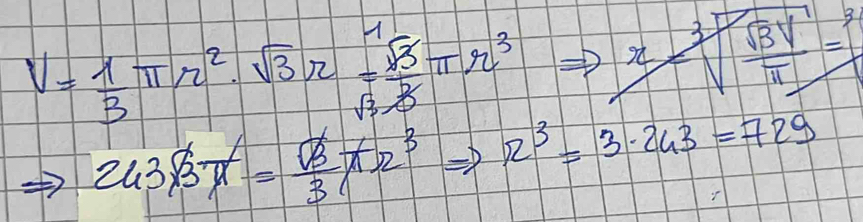 V = 1/3 π r² · √3 r = √3/3 π r³ ⇒ r = ³√(√3 V / π) = ³√
⇒ 243√3 π = √3/3 π r³ ⇒ r³ = 3·243 = 729